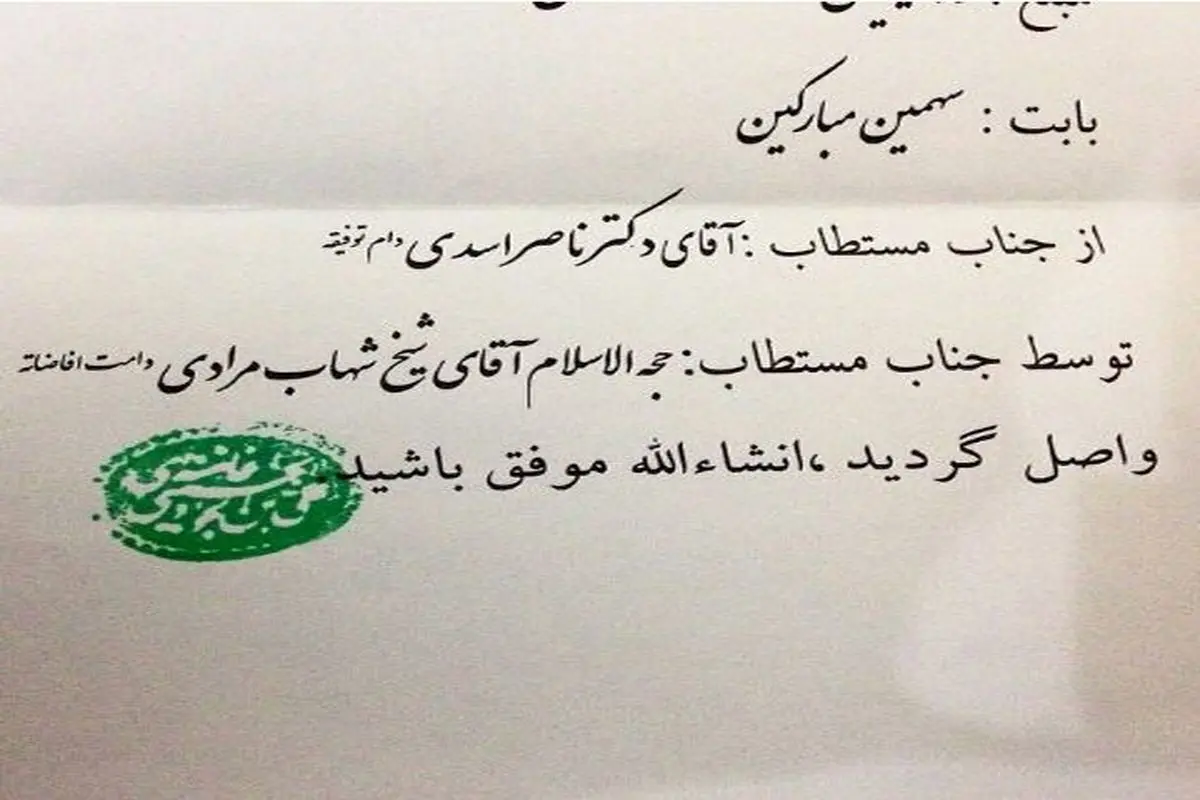 بابت : سهمین مبارکین
از جناب مستطاب :آقای دکتر ناصر اسدی دام توفیقه
توسط جناب مستطاب: حجه الاسلام آقای شیخ شهاب مرادی دامت افاضاته
واصل گردید ،انشاءالله موفق باشید.